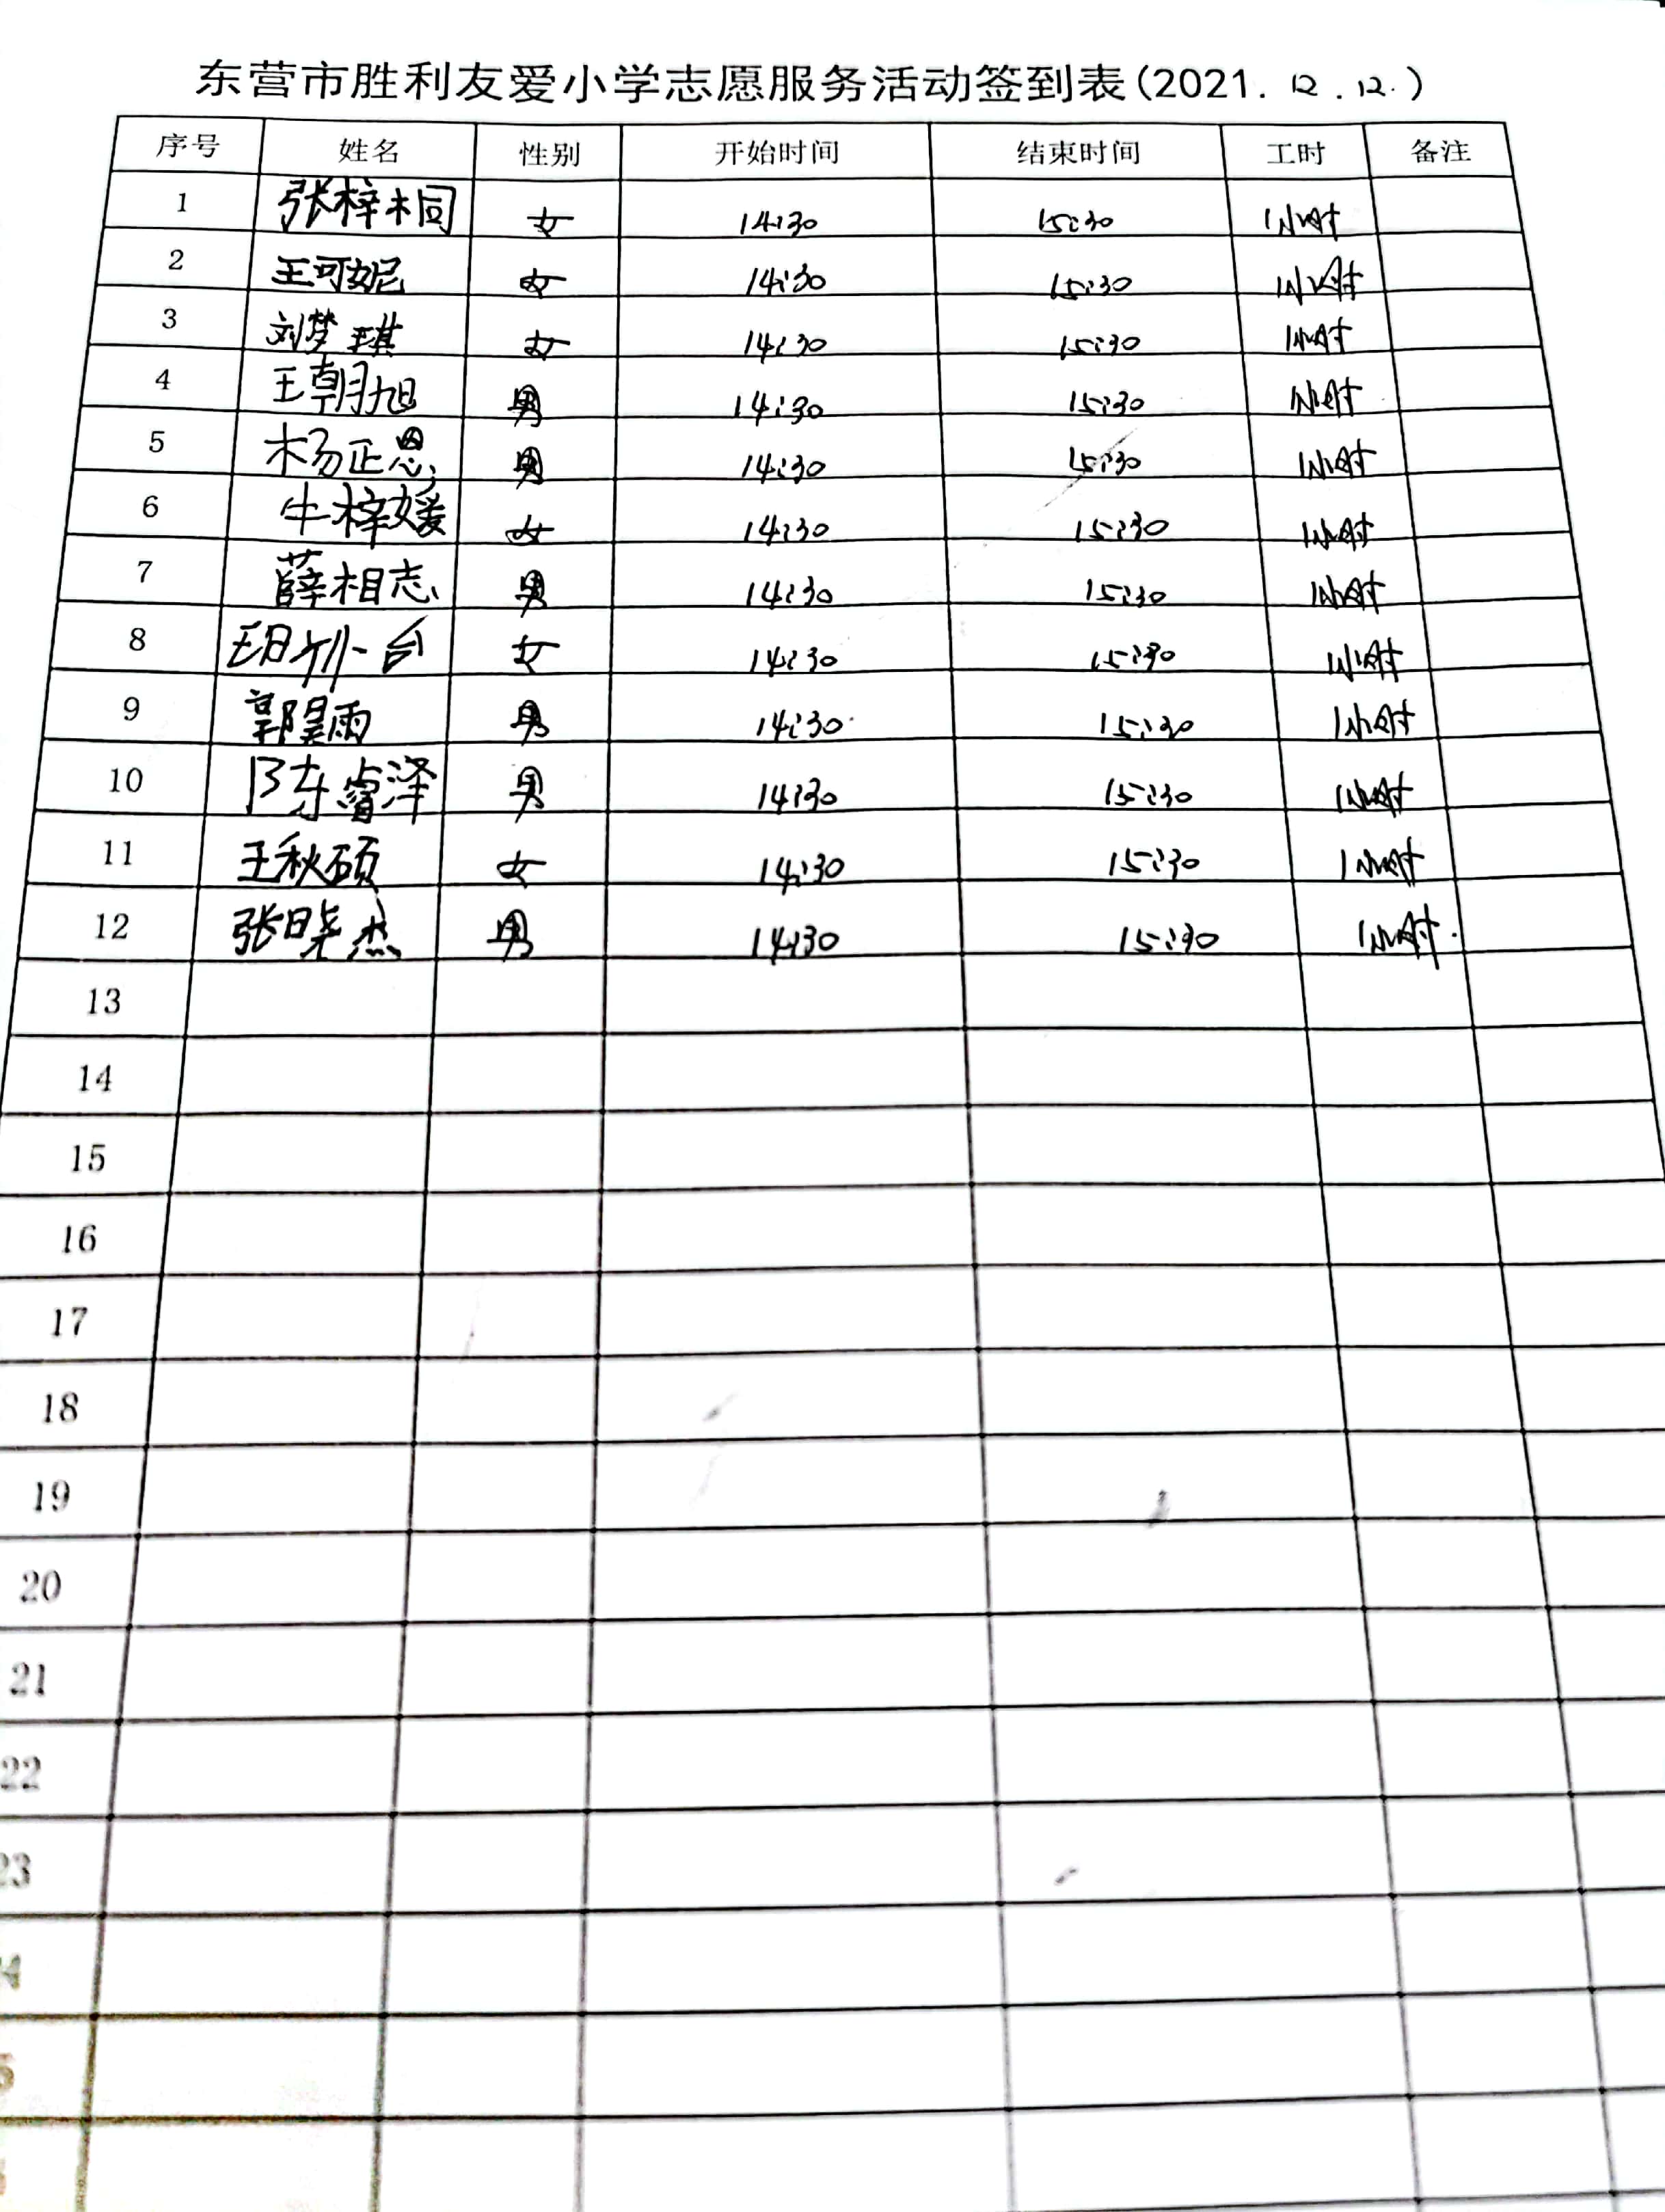 东营市胜利友爱小学志愿服务活动签到表(2021. 12. 12.)
序号 姓名 性别 开始时间 结束时间 工时 备注
1 张梓桐 女 14:30 15:30 1小时
2 王可妮 女 14:30 15:30 1小时
3 刘梦琪 女 14:30 15:30 1小时
4 王朝旭 男 14:30 15:30 1小时
5 杨正恩 男 14:30 15:30 1小时
6 牛梓媛 女 14:30 15:30 1小时
7 薛相志 男 14:30 15:30 1小时
8 女 14:30 15:30 1小时
9 郭昊雨 男 14:30 15:30 1小时
10 陈睿泽 男 14:30 15:30 1小时
11 王秋硕 女 14:30 15:30 1小时
12 张晓杰 男 14:30 15:30 1小时
13
14
15
16
17
18
19
20
21
22
23